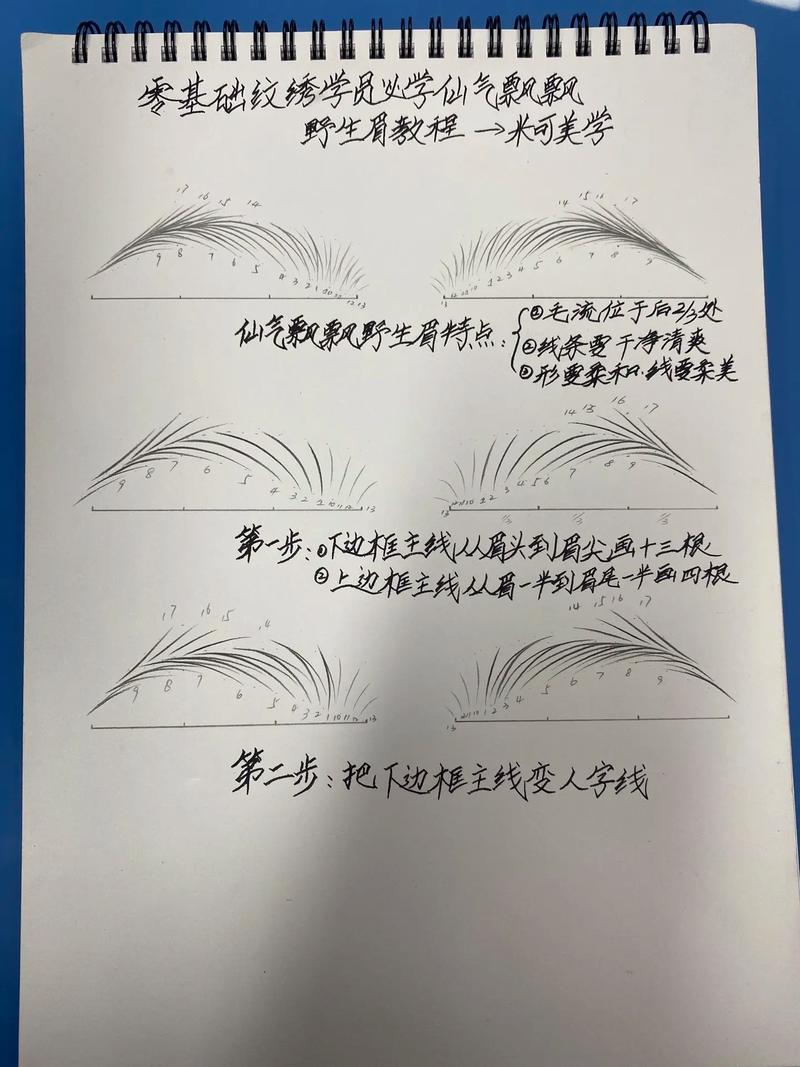 零基础纹绣学员必学仙气飘飘
野生眉教程→米可美学
17 16 15 14
14 15 16 17
9 8 7 6 5 4 3 2 1 10 11 12 13
13 12 11 10 1 2 3 4 5 6 7 8 9
仙气飘飘野生眉特点:
①毛流位于后2/3处
②线条要干净清爽
③形要柔和.线要柔美
14 15 16 17
9 8 7 6 5 4 3 2 1 10 11 12 13
13 12 11 10 1 2 3 4 5 6 7 8 9
1/3 1/3 1/3
第一步:①下边框主线从眉头到眉尖画十三根
②上边框主线从眉一半到眉尾一半画四根
17 16 15 14
14 15 16 17
9 8 7 6 5 4 3 2 1 10 11 12 13
13 12 11 10 1 2 3 4 5 6 7 8 9
第二步:把下边框主线变人字线